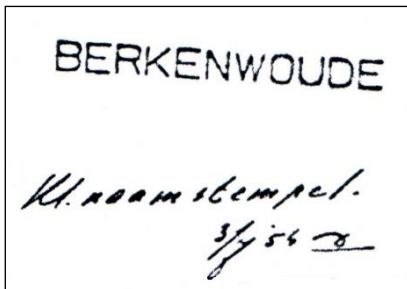 BERKENWOUDE
Kl. naamstempel.